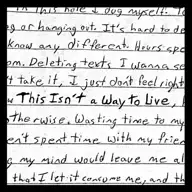 In this hole I dug myself. T
g or hanging out. It's hard to de
know any different. Hours spe
om. Deleting texts I wanna se
t take it, I just don't feel right
This Isn't a Way to Live,
therwise, Wasting time to my
en't spent time with my frien
g my mind would leave me al
that I let it consume me, and th